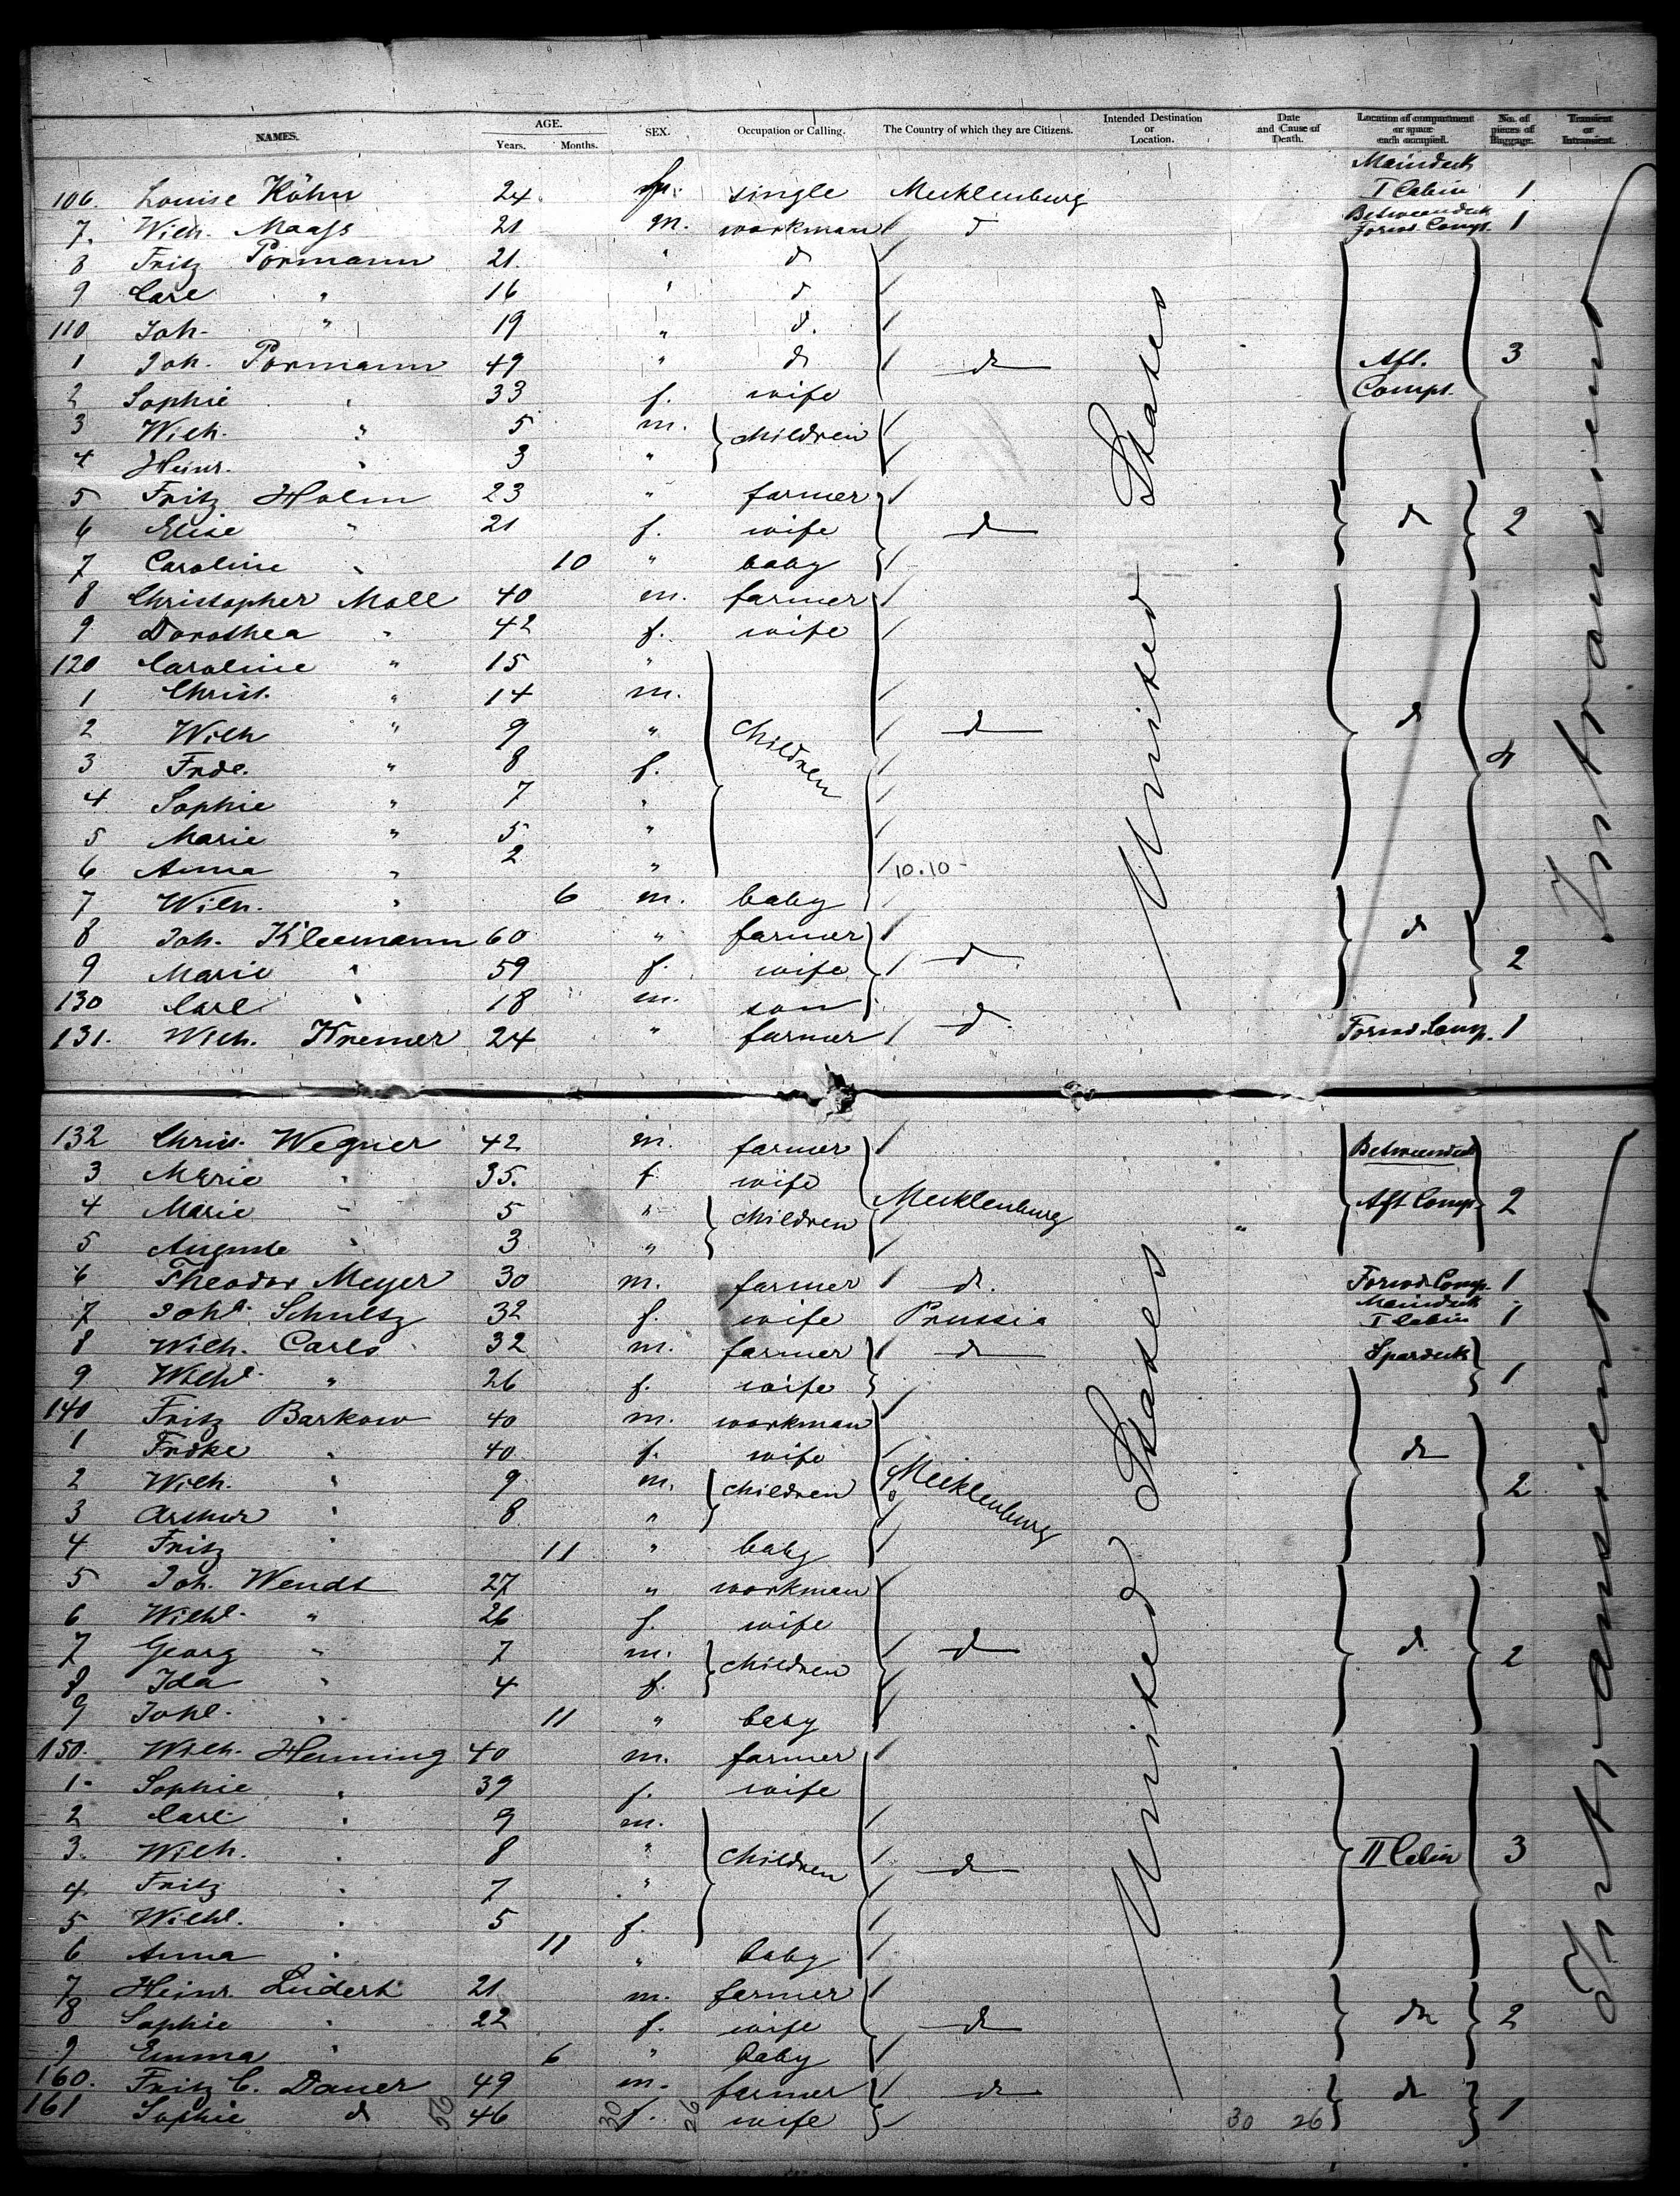 NAMES. AGE. Years. Months. SEX. Occupation or Calling. The Country of which they are Citizens. Intended Destination or Location. Date and Cause of Death. Location of compartment or space each occupied. No. of pieces of Baggage. Transient or Intransient.
Maindeck
106. Louise Köhn 24 f. single Mecklenburg I Cabin 1
Betweendeck
7. Wilh. Maass 21 m. workman d Forwd. Comp. 1
8 Fritz Pormann 21. " d
9 Carl " 16 " d
110 Joh. " 19 " d.
1 Joh. Pormann 49 " d d Aft. 3
2 Sophie " 33 f. wife Compt.
3 Wilh. " 5 m. children
4 Heinr. " 3 "
5 Fritz Holm 23 " farmer
6 Elise " 21 f. wife d d 2
7 Caroline " 10 " baby
8 Christopher Moll 40 m. farmer
9 Dorothea " 42 f. wife
120 Caroline " 15 "
1 Christ. " 14 m.
2 Wilh " 9 " children d d
3 Frde. " 8 f. 4
4 Sophie " 7 "
5 Marie " 5 "
6 Anna " 2 " 10.10-
7 Wilh. " 6 m. baby
8 Joh. Kleemann 60 " farmer d
9 Marie " 59 f. wife d 2
130 Carl " 18 m. son
131. Wilh. Kremer 24 " farmer d Forwd. Comp. 1
United States
Intransient
132 Chris. Wegner 42 m. farmer Betweendeck
3 Marie " 35. f wife
4 Marie " 5 " children Mecklenburg Aft Comp. 2
5 Auguste " 3 "
6 Theodor Meyer 30 m. farmer d. Forwd Comp. 1
Maindeck
7 Joha. Schultz 32 f. wife Prussia I Cabin 1
8 Wilh. Carls 32 m. farmer d Spardeck
9 Wilhl. " 26 f. wife 1
140 Fritz Barkow 40 m. workman
1 Frdke " 40 f. wife d
2 Wilh. " 9 m. children Mecklenburg 2
3 Arthur " 8 "
4 Fritz " 11 " baby
5 Joh. Wendt 27 " workman
6 Wilhl. " 26 f. wife
7 Georg " 7 m. children d d 2
8 Ida " 4 f.
9 Johl. " 11 " baby
150. Wilh. Henning 40 m. farmer
1- Sophie " 39 f. wife
2 Carl " 9 m.
3. Wilh. " 8 " children d II Cabin 3
4. Fritz " 7 "
5 Wilhl. " 5 f.
6 Anna " 11 " baby
7 Heinr. Lüdert 21 m. farmer
8 Sophie " 22 f. wife d d 2
9 Emma " 6 " baby
160. Fritz C. Daner 49 m. farmer d d
161 Sophie d 56 46 30 f. 26 wife 30 26 1
United States
Intransient